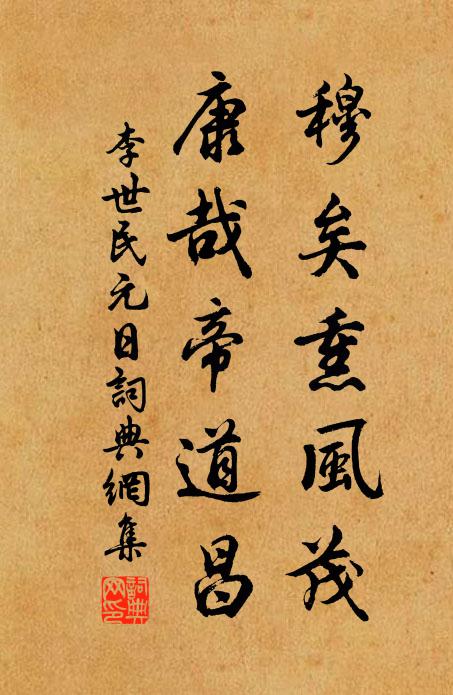 穆矣熏風茂
康哉帝道昌
李世民元日詞典網集
詞典网印